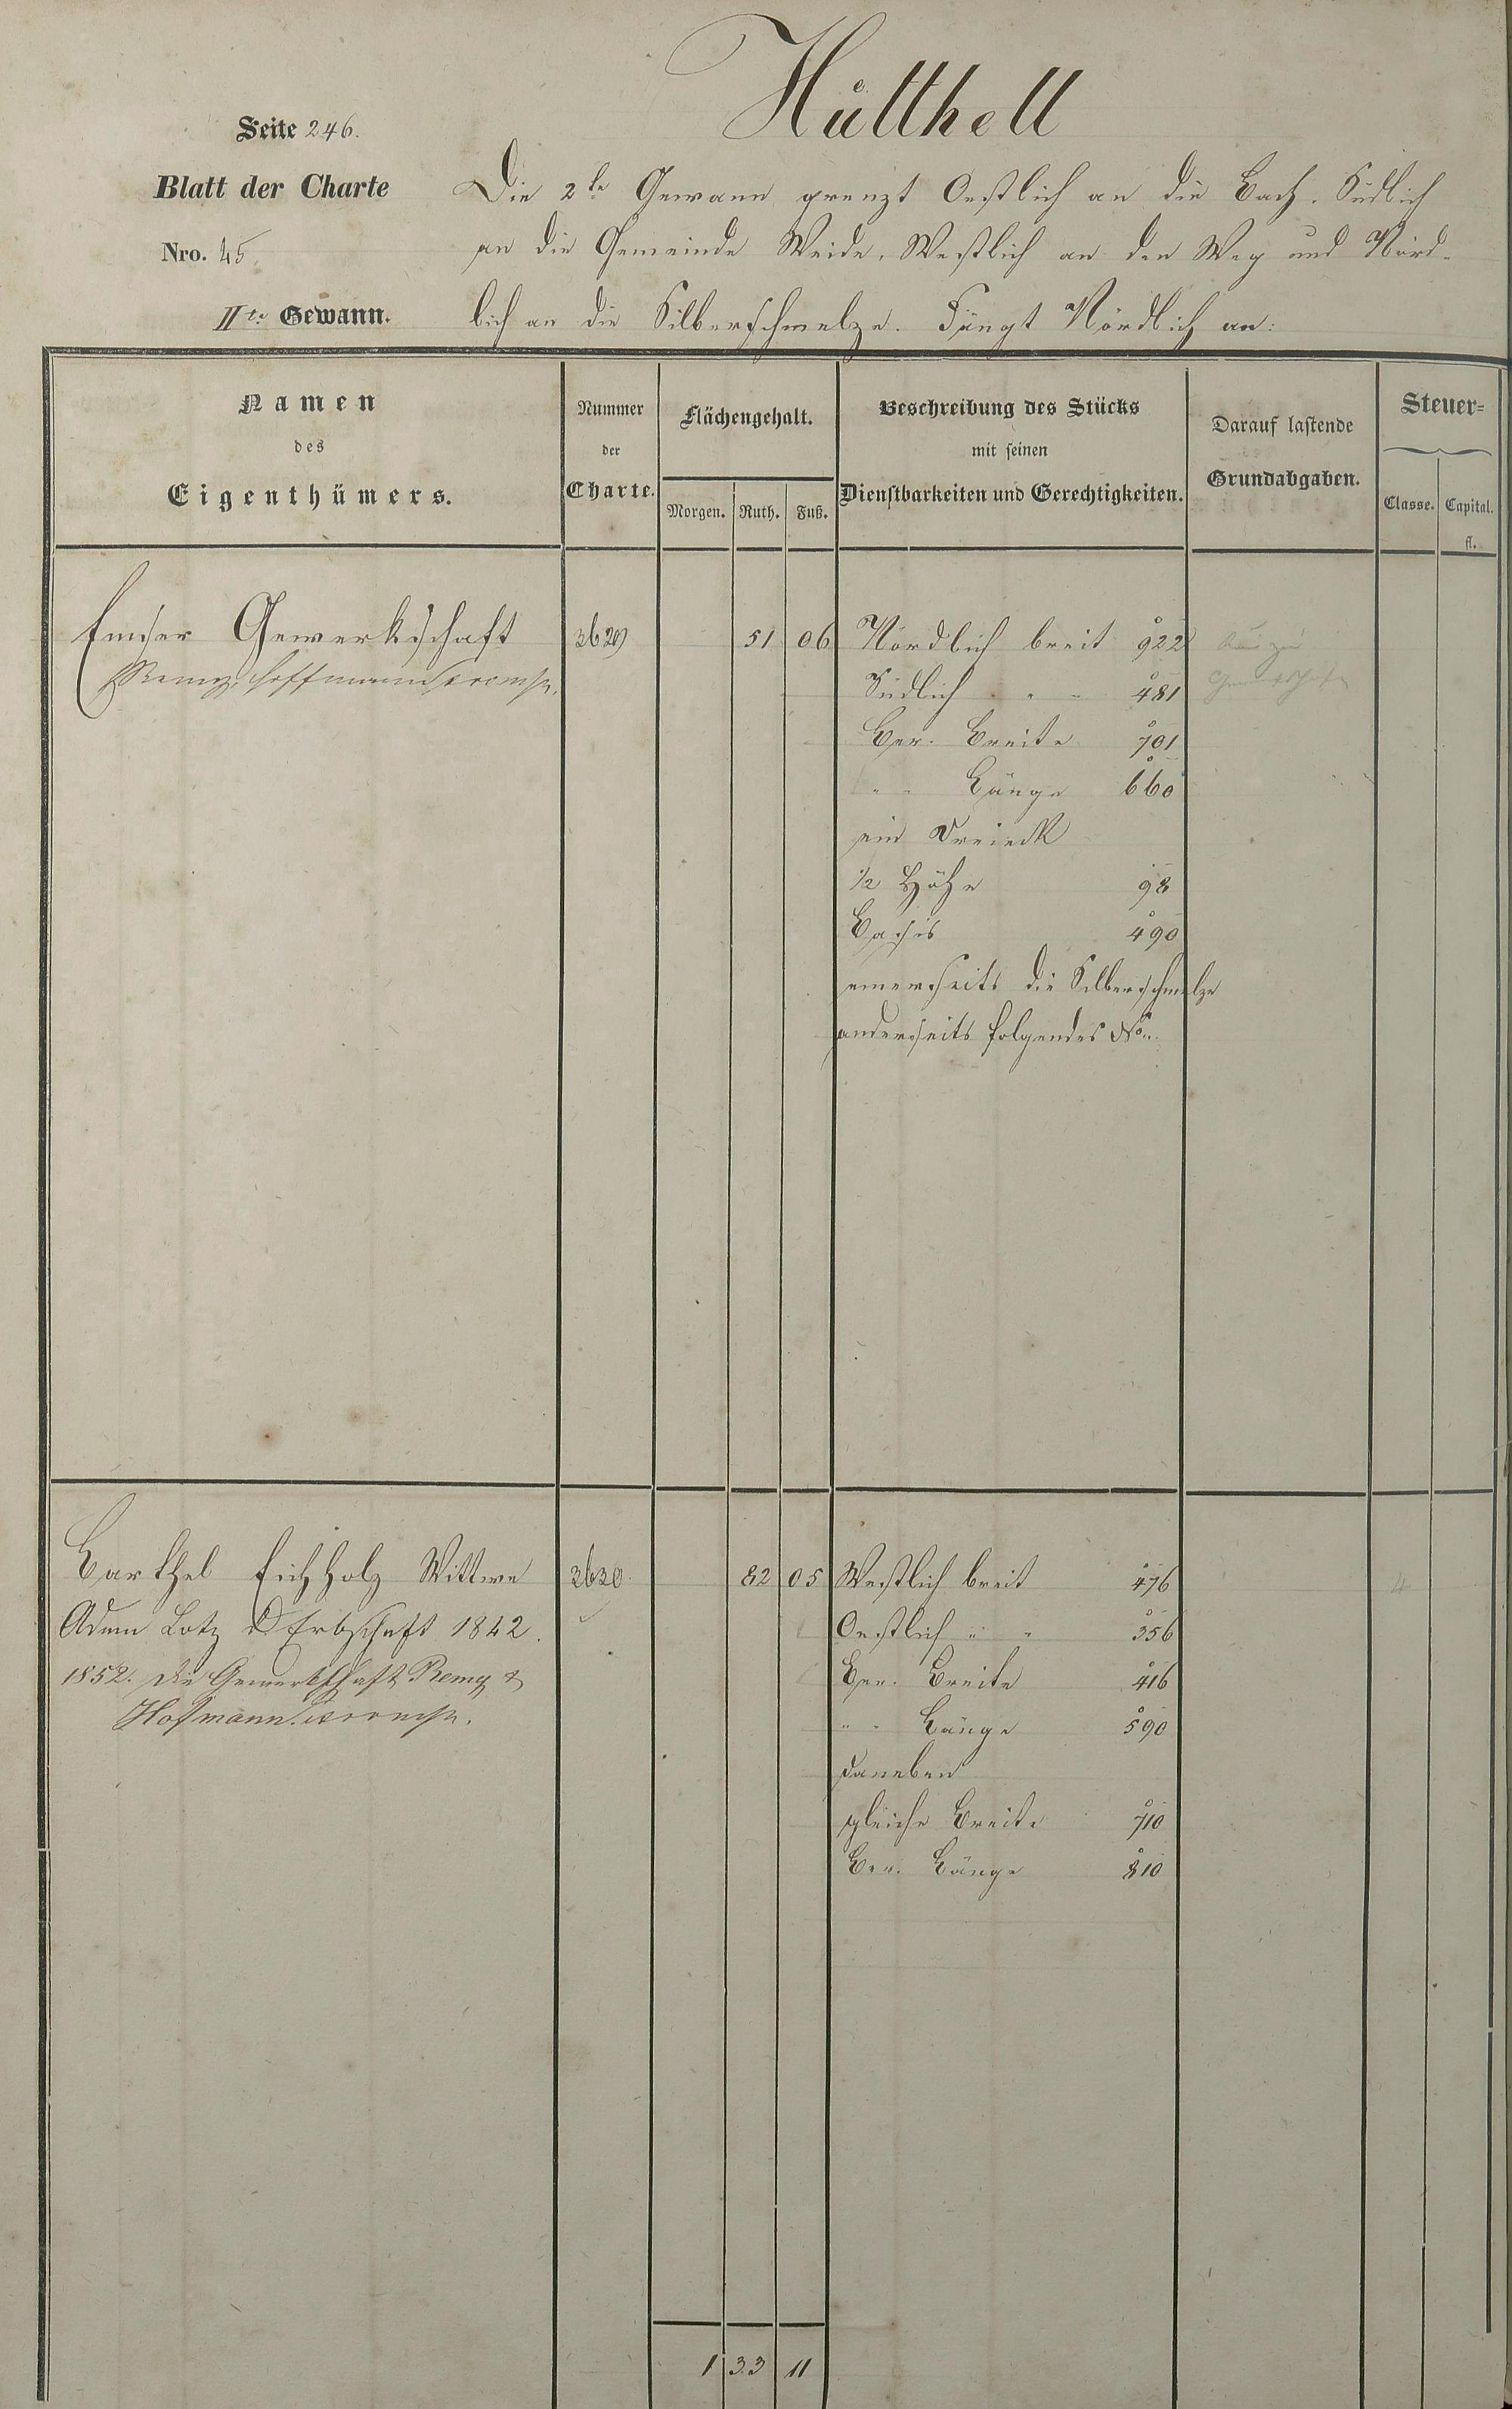 Hütthell
Seite 246.
Blatt der Charte
Nro. 45
IIte Gewann.
Die 2te Gewann grenzt Oestlich an die Bach, Südlich
an die Gemeinde Weide, Westlich an den Weg und Nörd-
lich an die Silberschmelze. Fängt Nördlich an:
Namen
des
Eigenthümers.
Nummer
der
Charte.
Flächengehalt.
Morgen. Ruth. Fuß.
Beschreibung des Stücks
mit seinen
Dienstbarkeiten und Gerechtigkeiten.
Darauf lastende
Grundabgaben.
Steuer=
Classe. Capital.
fl.
Emser Gewerkschaft 3629 51 06 Nördlich breit 922
Remy, Hoffmann
Südlich " " 481
Ber. Breite 701
" " Länge 660
ein Dreieck
1/2 Höhe 98
Basis 490
einerseits die Silberschmelze
anderseits folgendes No.
Barthel Eichholz Wittwe 3630. 82 05 Westlich breit 476
Adam Lotz Erbschaft 1842. Oestlich " " 356
1852. Die Gewerkschaft Remy & Ber. Breite 416
Hofmann " " Länge 590
daneben
gleiche Breite 710
Ber. Länge 810
1 33 11